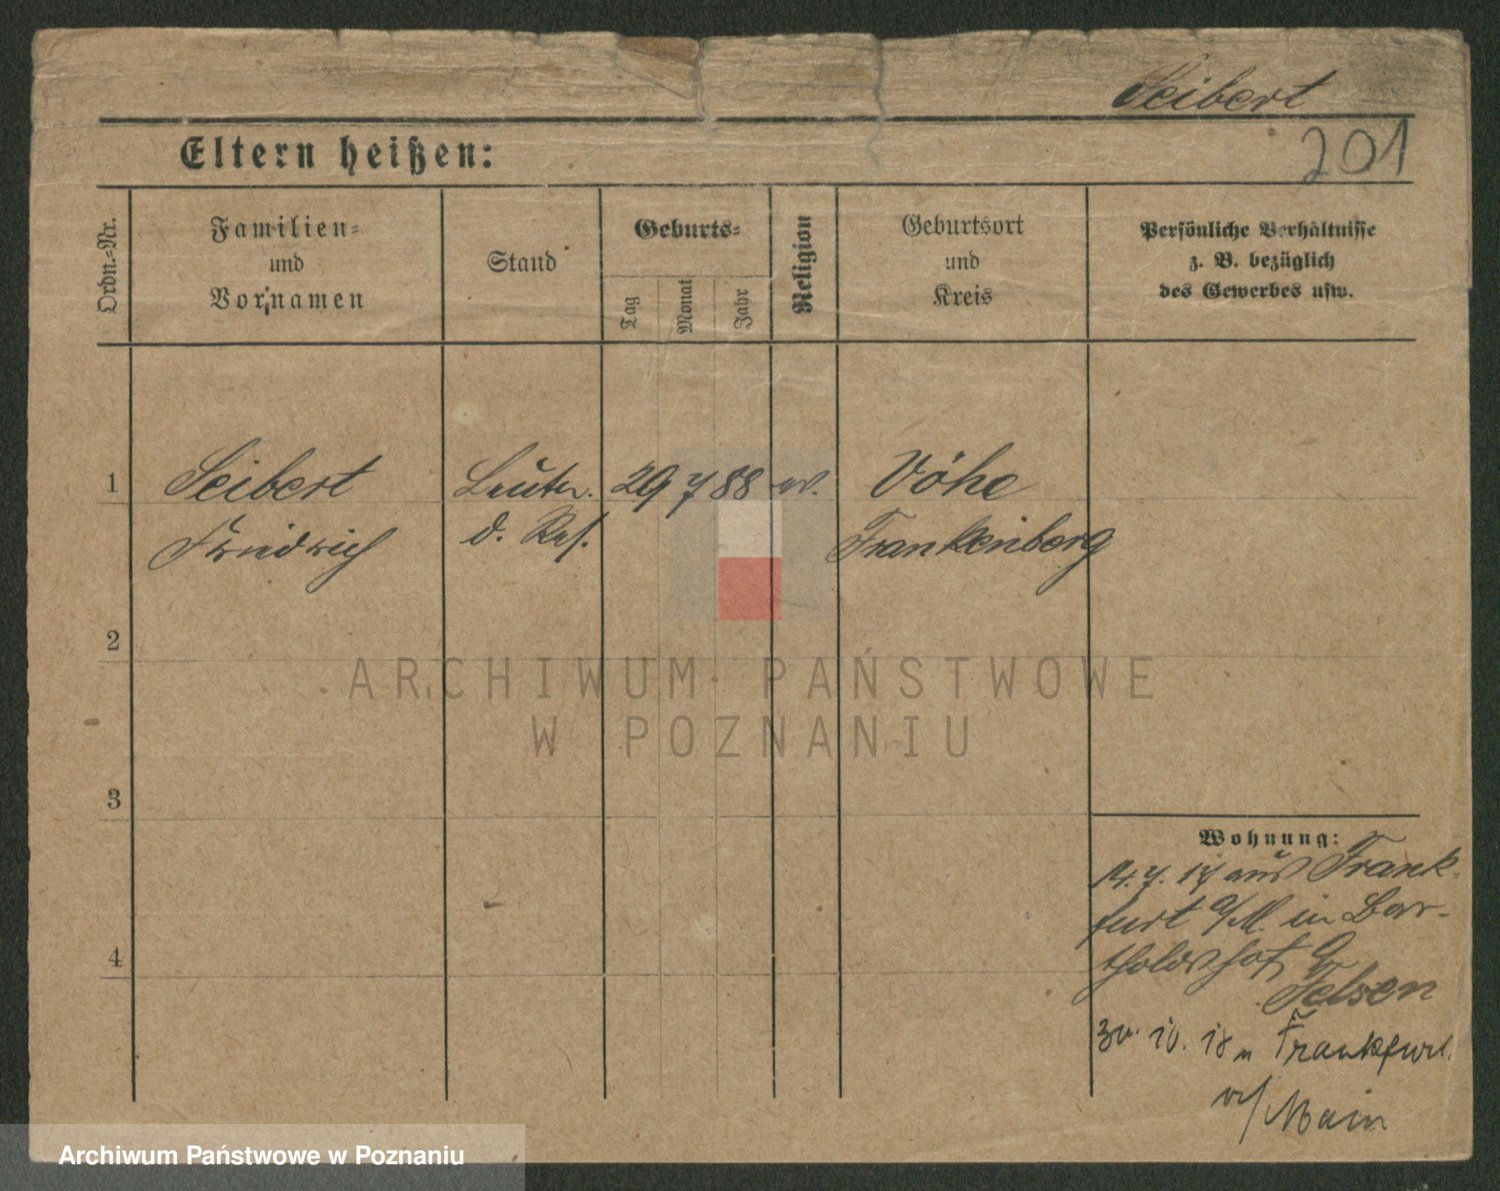 Seibert
201
Eltern heißen:
Ordn.-Nr.
Familien-
und
Vornamen
Stand
Geburts-
Tag
Monat
Jahr
Religion
Geburtsort
und
Kreis
Persönliche Verhältnisse
z. B. bezüglich
des Gewerbes usw.
1 Seibert Leutn. 29 7 88 ev. Vöhe
Friedrich d. Res. Frankenberg
2
3
4
Wohnung:
14.7.17 aus Frank-
furt a/M. in Bar-
tholdshof

30. 10. 18 n Frankfurt
a/Main
ARCHIWUM PAŃSTWOWE
W POZNANIU
Archiwum Państwowe w Poznaniu